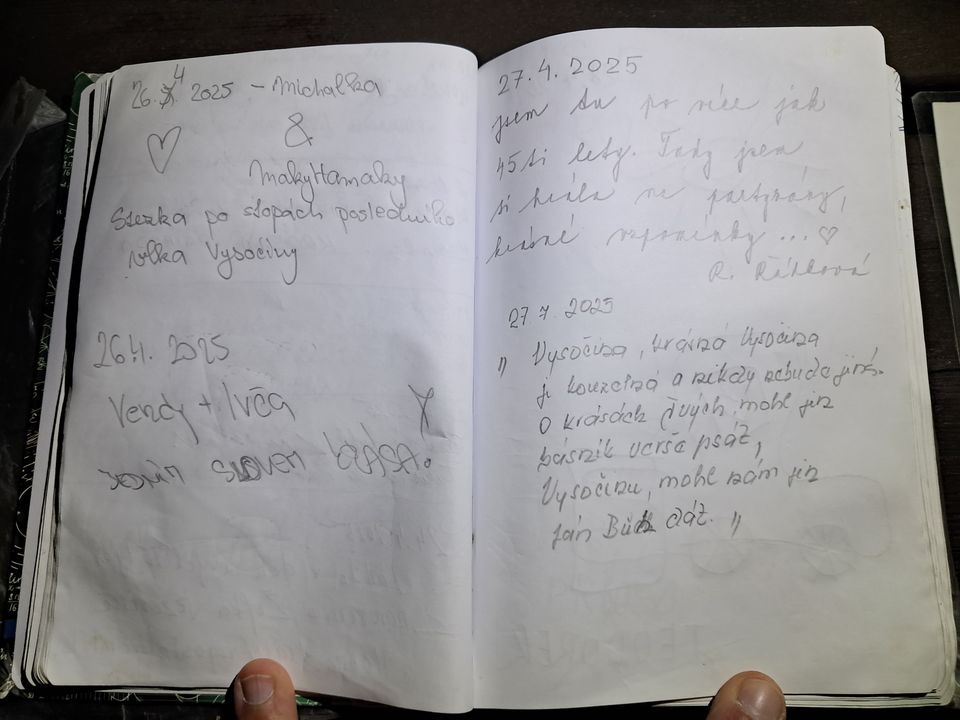 26. 4. 2025 - Michalka
&
MakyHamaky
Stezka po stopách posledního
vlka Vysočiny
26.4. 2025
Vendy + Ivča
JEDNÍM SLOVEM KRÁSA.
27. 4. 2025
jsem tu po více jak
45ti lety. Tady jsem
si hrála na partyzány,
krásné vzpomínky ...
R.
27. 7. 2025
" Vysočina, krásná Vysočina
je kouzelná a nikdy nebude jiná.
O krásách tvých, mohl jen
básník verše psát,
Vysočinu, mohl nám jen
Pán Bůh dát. "